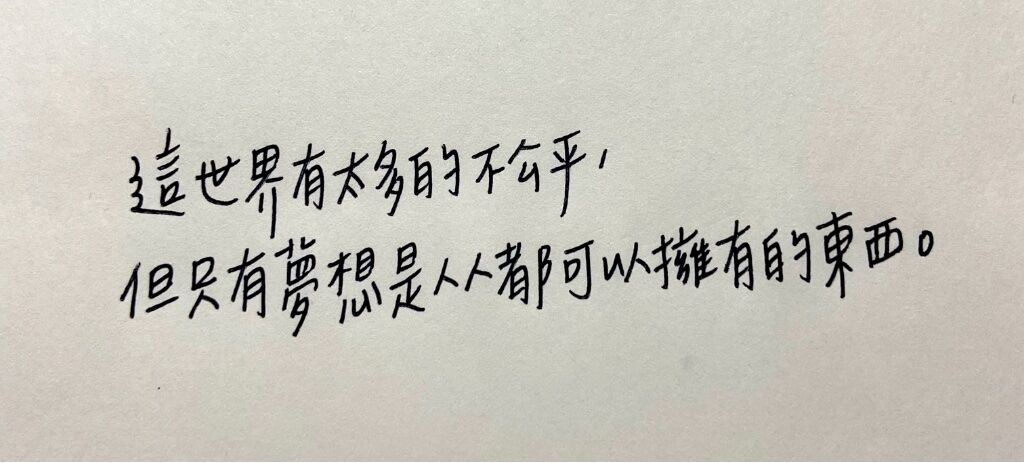 這世界有太多的不公平，
但只有夢想是人人都可以擁有的東西。